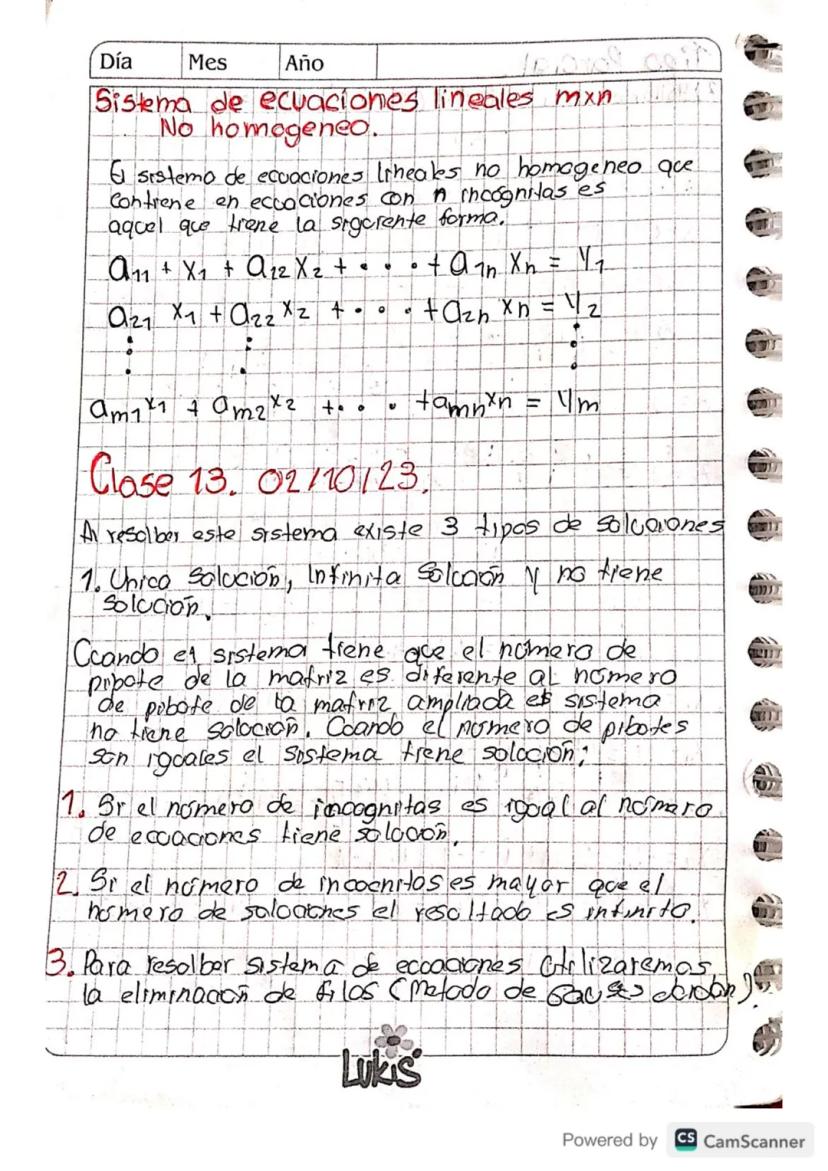 Día Mes Año
Sistema de ecuaciones lineales mxn
No homogeneo.
El sistema de ecuaciones lineales no homogeneo que
contiene en ecuaciones con n incognitas es
aquel que tiene la siguiente forma.
a11 + x1 + a12 x2 + . . . + a1n xn = y1
a21 x1 + a22 x2 + . . . + a2n xn = y2
⋮ ⋮ ⋮
am1 x1 + am2 x2 + . . . + amn xn = ym
Clase 13. 02/10/23.
Al resolber este sistema existe 3 tipos de soluciones
1. Unica solución, Infinita solución y no tiene
solución.
Cuando el sistema tiene que el número de
pibote de la matriz es diferente al número
de pibote de la matriz ampliada el sistema
no tiene solución. Cuando el número de pibotes
son iguales el sistema tiene solución;
1. Si el número de incognitas es igual al número
de ecuaciones tiene solución.
2. Si el número de incognitas es mayor que el
número de soluciones el resultado es infinito.
3. Para resolber sistema de ecuaciones utilizaremos
la eliminación de filas (Metodo de Gauss Jordan).
Lukis
Powered by CS CamScanner